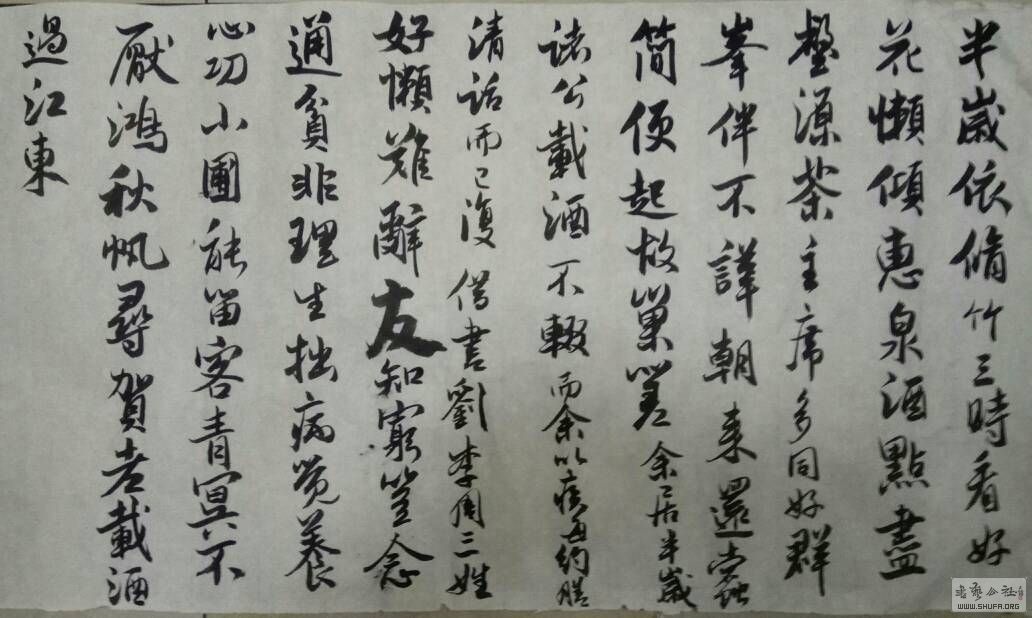 半歲依脩竹三時看好
花懶傾惠泉酒點盡
壑源茶主席多同好群
峯伴不譁朝來還蠹
簡便起故巢嗟余居半歲
諸公載酒不輟而余以疾每約膳
清話而已復借書劉李周三姓
好懶難辭友知窮豈念
通貧非理生拙病覺養
心功小圃能留客青冥不
厭鴻秋帆尋賀老載酒
過江東
書藝公社
WWW.SHUFA.ORG